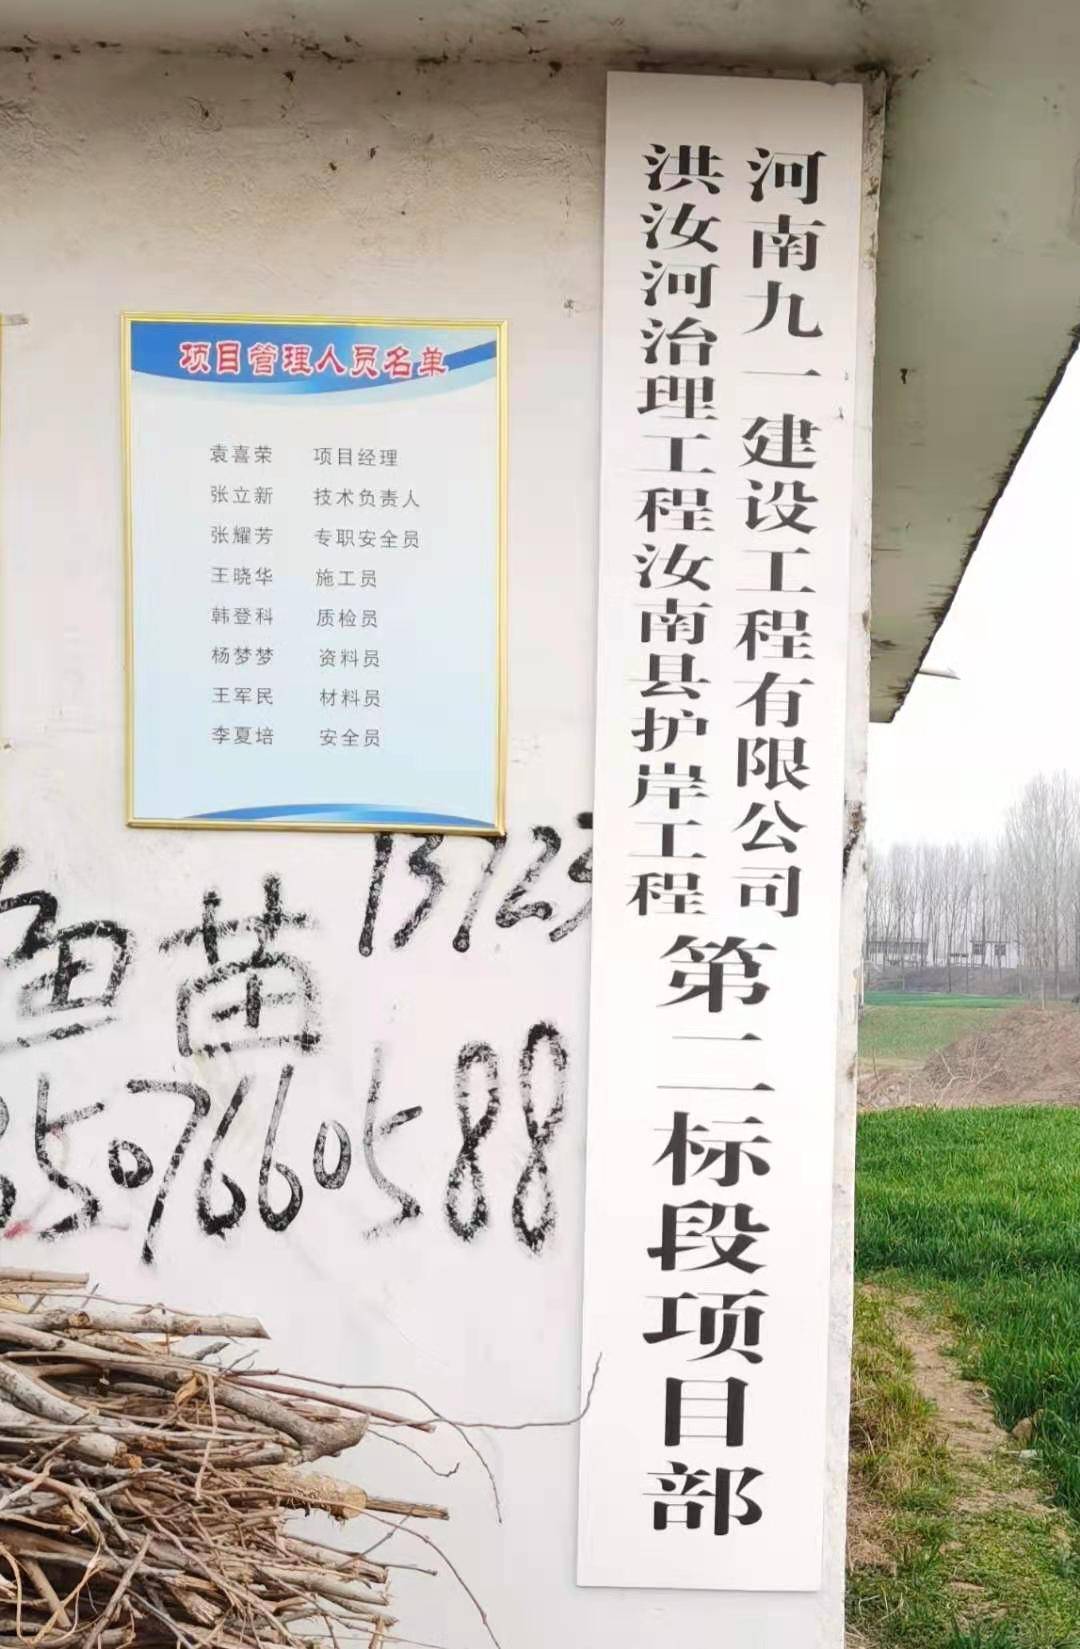 项目管理人员名单
袁喜荣 项目经理
张立新 技术负责人
张耀芳 专职安全员
王晓华 施工员
韩登科 质检员
杨梦梦 资料员
王军民 材料员
李夏培 安全员
河南九一建设工程有限公司
洪汝河治理工程汝南县护岸工程
第二标段项目部
鱼苗
13723
3507660588